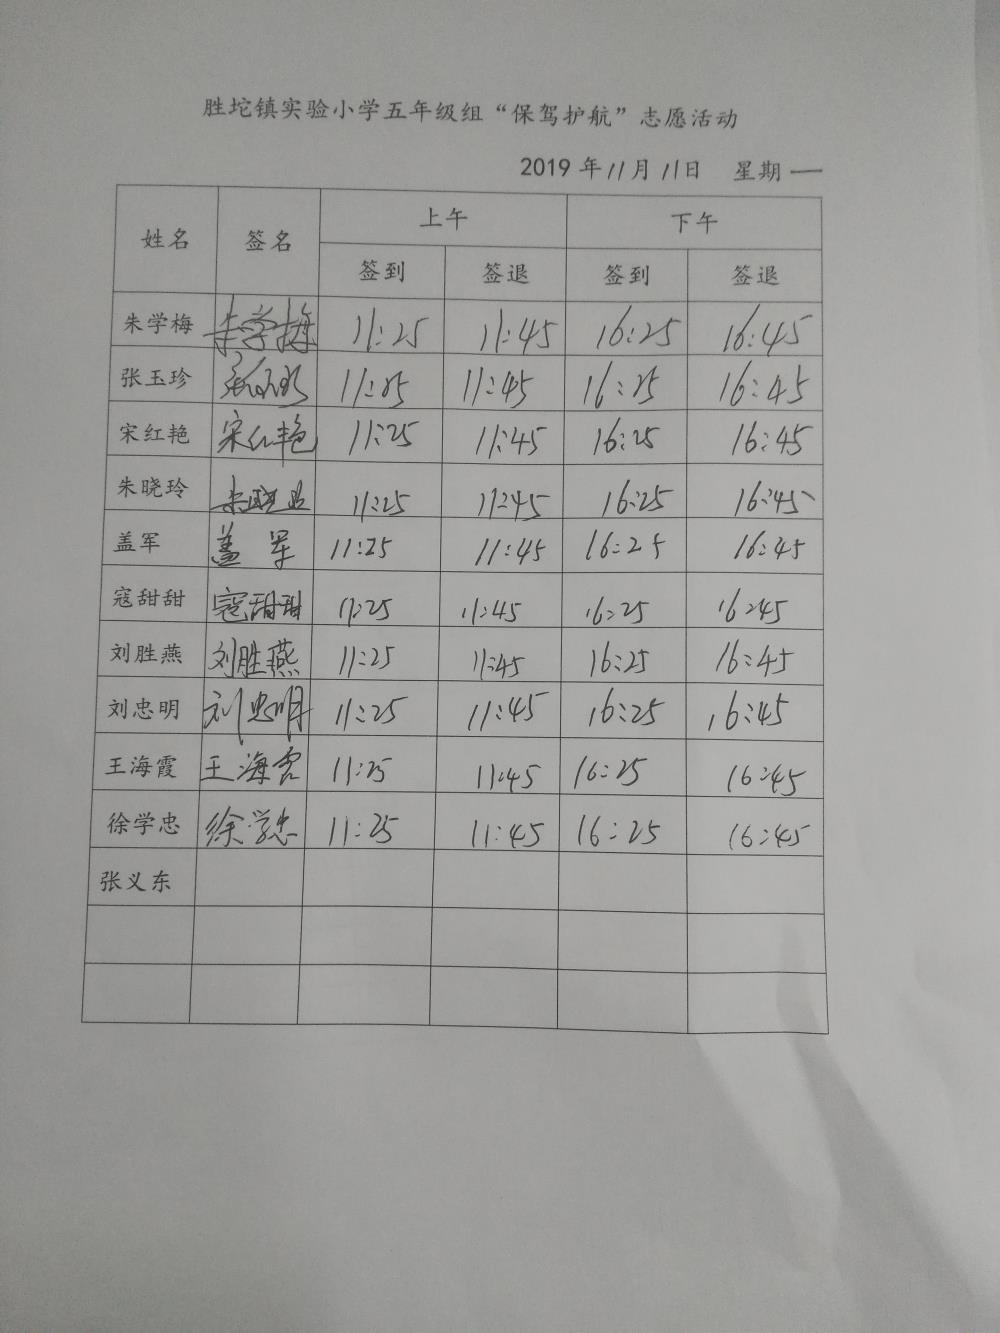 胜坨镇实验小学五年级组“保驾护航”志愿活动
2019年11月11日 星期一
姓名 签名 上午 下午
签到 签退 签到 签退
朱学梅 朱学梅 11:25 11:45 16:25 16:45
张玉珍 张玉珍 11:25 11:45 16:25 16:45
宋红艳 宋红艳 11:25 11:45 16:25 16:45
朱晓玲 朱晓玲 11:25 11:45 16:25 16:45
盖军 盖军 11:25 11:45 16:25 16:45
寇甜甜 寇甜甜 11:25 11:45 16:25 16:45
刘胜燕 刘胜燕 11:25 11:45 16:25 16:45
刘忠明 刘忠明 11:25 11:45 16:25 16:45
王海霞 王海霞 11:25 11:45 16:25 16:45
徐学忠 徐学忠 11:25 11:45 16:25 16:45
张义东